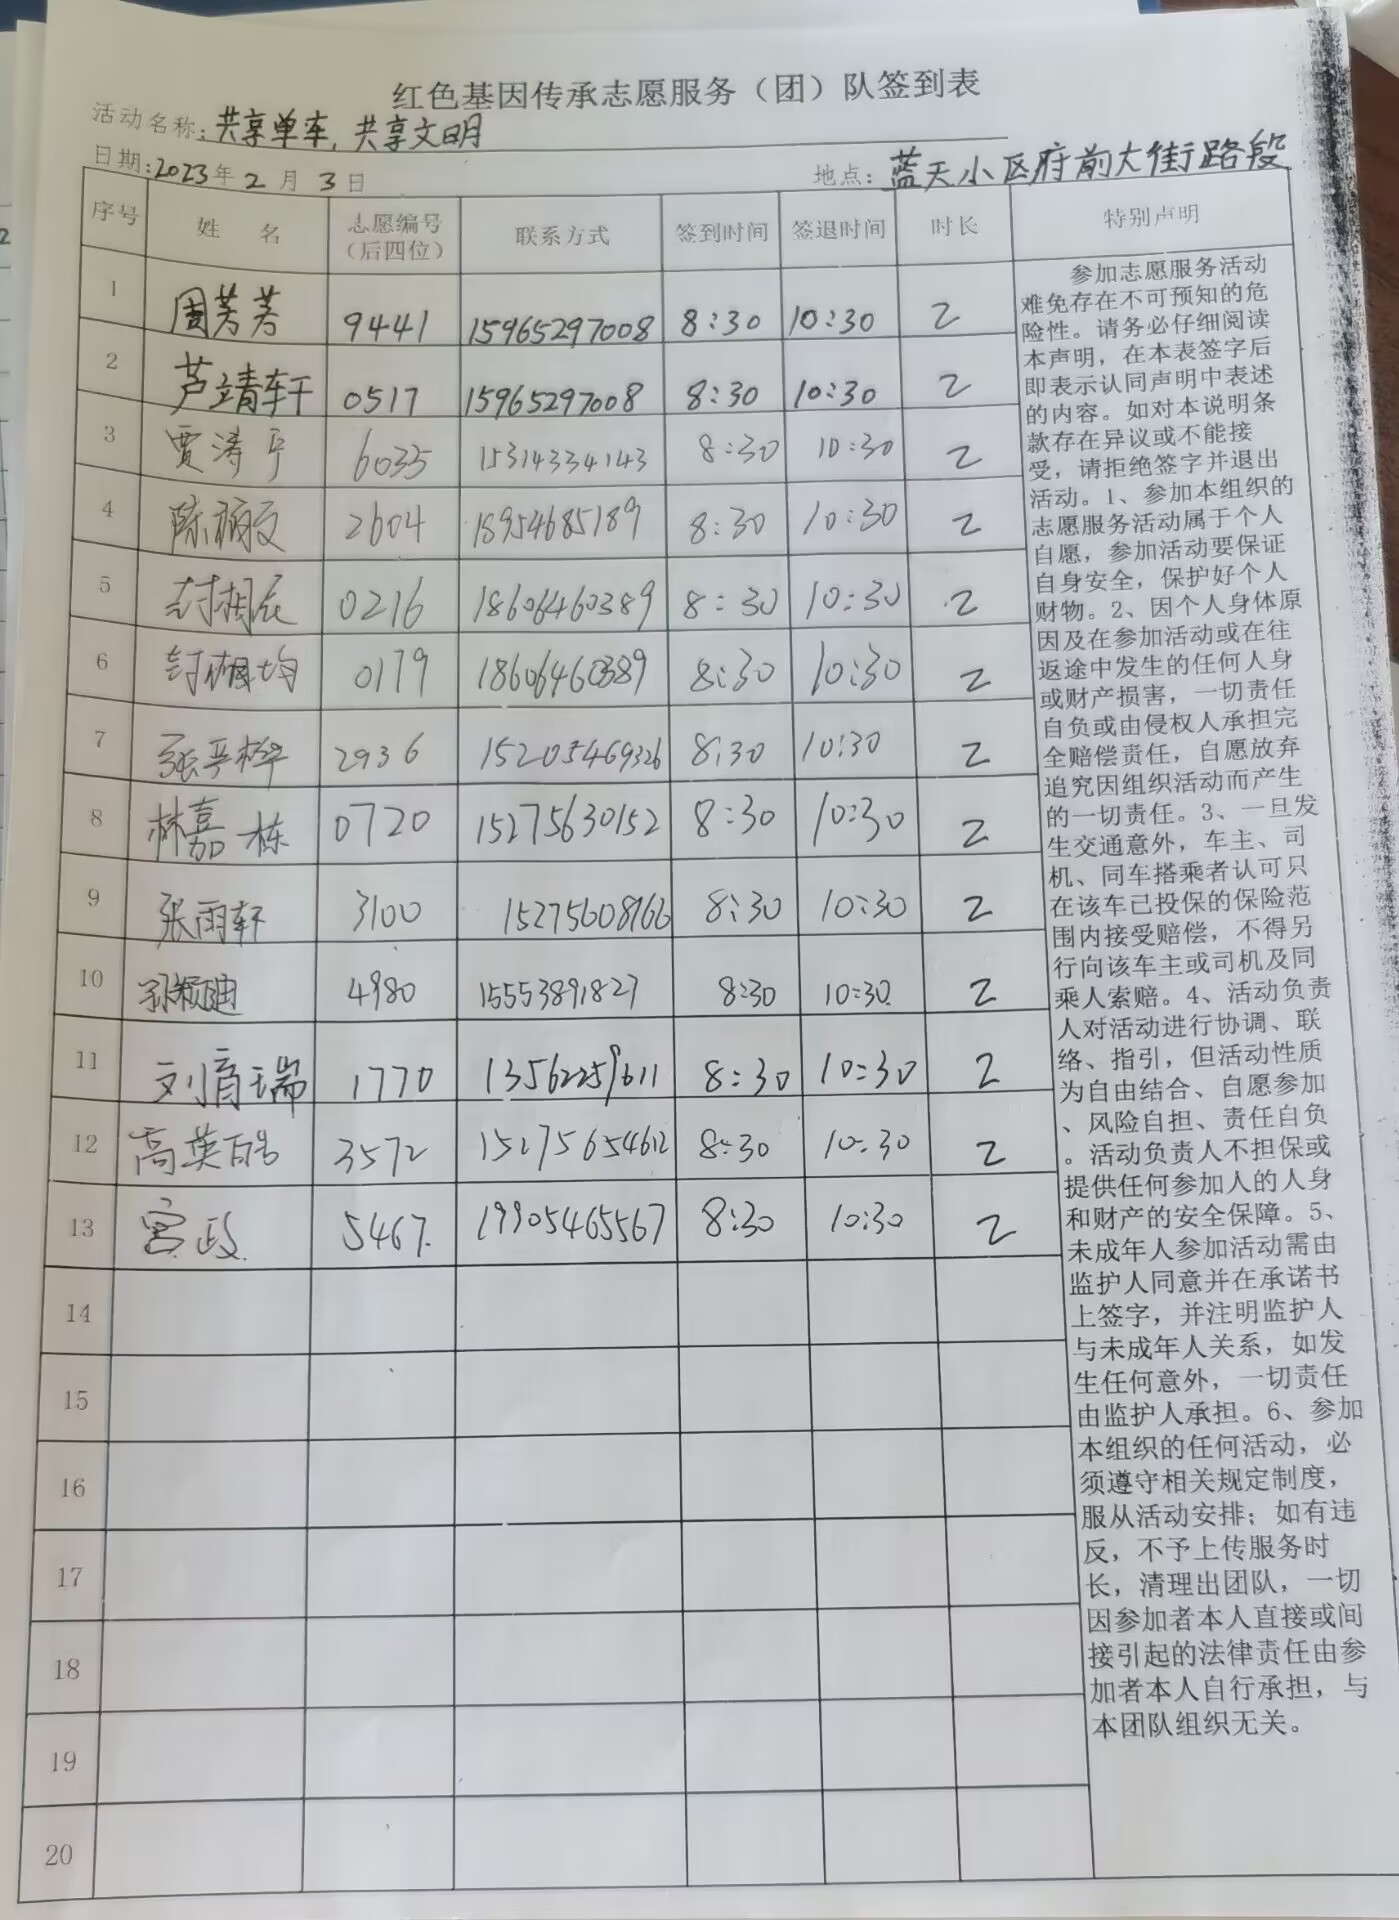 红色基因传承志愿服务（团）队签到表
活动名称：共享单车，共享文明
日期：2023年2月3日 地点：蓝天小区府前大街路段
序号 姓名 志愿编号（后四位） 联系方式 签到时间 签退时间 时长 特别声明
1 周芳芳 9441 15965297008 8:30 10:30 2
2 芦靖轩 0517 15965297008 8:30 10:30 2
3 贾涛 6035 15314334143 8:30 10:30 2
4 陈 2604 18954685189 8:30 10:30 2
5 封 0216 18606460389 8:30 10:30 2
6 封 0179 18606460389 8:30 10:30 2
7 张 桦 2936 15205469326 8:30 10:30 2
8 林嘉栋 0720 15275630152 8:30 10:30 2
9 张雨轩 3100 15275608166 8:30 10:30 2
10 孙颖迪 4980 15553891827 8:30 10:30 2
11 刘育瑞 1770 13562259611 8:30 10:30 2
12 高英皓 3572 15275654612 8:30 10:30 2
13 宫政 5467. 19905465567 8:30 10:30 2
14
15
16
17
18
19
20
参加志愿服务活动
难免存在不可预知的危
险性。请务必仔细阅读
本声明，在本表签字后
即表示认同声明中表述
的内容。如对本说明条
款存在异议或不能接
受，请拒绝签字并退出
活动。1、参加本组织的
志愿服务活动属于个人
自愿，参加活动要保证
自身安全，保护好个人
财物。2、因个人身体原
因及在参加活动或在往
返途中发生的任何人身
或财产损害，一切责任
自负或由侵权人承担完
全赔偿责任，自愿放弃
追究因组织活动而产生
的一切责任。3、一旦发
生交通意外，车主、司
机、同车搭乘者认可只
在该车已投保的保险范
围内接受赔偿，不得另
行向该车主或司机及同
乘人索赔。4、活动负责
人对活动进行协调、联
络、指引，但活动性质
为自由结合、自愿参加
、风险自担、责任自负
。活动负责人不担保或
提供任何参加人的人身
和财产的安全保障。5、
未成年人参加活动需由
监护人同意并在承诺书
上签字，并注明监护人
与未成年人关系，如发
生任何意外，一切责任
由监护人承担。6、参加
本组织的任何活动，必
须遵守相关规定制度，
服从活动安排；如有违
反，不予上传服务时
长，清理出团队，一切
因参加者本人直接或间
接引起的法律责任由参
加者本人自行承担，与
本团队组织无关。